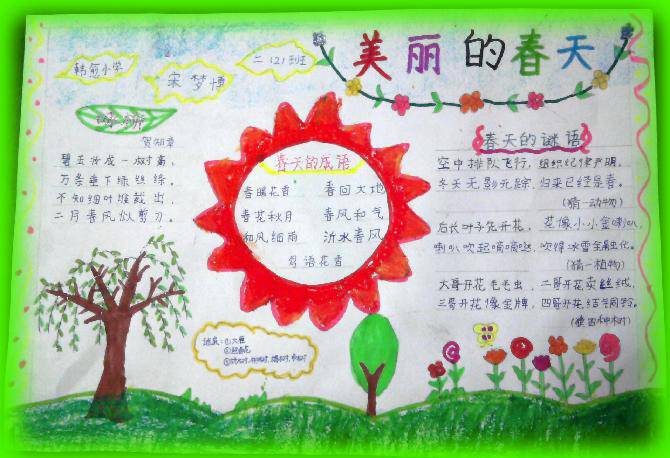 美丽的春天
韩愈小学
宋梦博
二(2)班
贺知章
碧玉妆成一树高,
万条垂下绿丝绦。
不知细叶谁裁出,
二月春风似剪刀。
春天的成语
春暖花香 春回大地
春花秋月 春风和气
和风细雨 沂水春风
鸟语花香
春天的谜语
空中排队飞行,组织纪律严明。
冬天无影无踪,归来已经是春。
(猜一动物)
后长叶子先开花,花像小小金喇叭,
喇叭吹起嘀嘀哒,吹得冰雪全融化。
(猜一植物)
大哥开花毛毛虫,二哥开花卖丝绒,
三哥开花像金牌,四哥开花结
(猜四种树)
谜底:①大雁
②迎春花